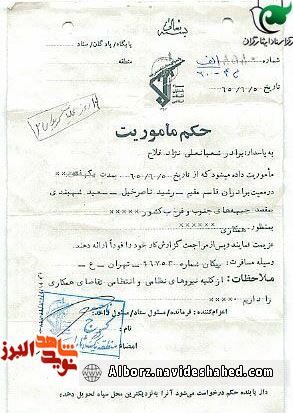 بسمه تعالی
پایگاه / پادگان / ستاد
منطقه
شماره
تاریخ ۶۵/۶/۵
حکم ماموریت
به پاسدار: برادر شعبانعلی نژاد فلاح
مأموریت داده میشود که از تاریخ ۶۵/۶/۵ بمدت یکهفته
در معیت برادران قاسم مقیم - رشید ناصرخیل - سعید شهبندی
بمقصد جبههای جنوب و غرب کشور ×××××
بمنظور: همکاری ×××××
عزیمت نمایند و پس از مراجعت گزارش کار خود را فوراً ارائه دهند.
وسیله مسافرت: پیکان شماره ۶۶۷۵۳ تهران - ع
ملاحظات: از کلیه نیروهای نظامی و انتظامی تقاضای همکاری
را داریم ×××××
اعزام‌کننده: فرمانده / مسئول ستاد / مسئول واحد:
نام:
امضاء
نوید شاهد البرز
Alborz.navideshahed.com
دارنده حکم درخواست می‌شود آنرا به نزدیکترین محل سپاه تحویل دهد.